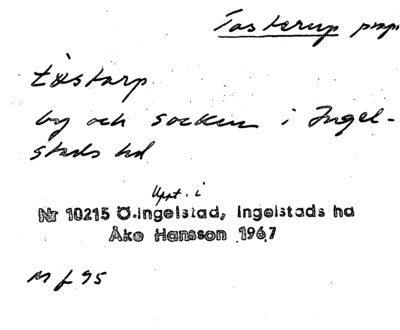 Tosterup prep.
tåstarp
by och socken i Ingel-
stads hd
Uppt. i
Nr 10215 Ö.Ingelstad, Ingelstads hd
Åke Hansson 1967
M f 95